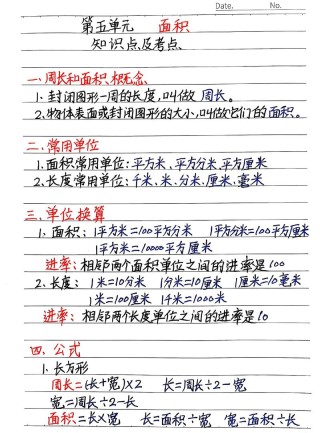 Date. No.
第五单元 面积
知识点及考点
一.周长和面积概念
1.封闭图形一周的长度,叫做 周长。
2.物体表面或封闭图形的大小,叫做它们的面积。
二.常用单位
1.面积常用单位:平方米、平方分米、平方厘米
2.长度常用单位:千米、米、分米、厘米、毫米
三.单位换算
1.面积:1平方米=100平方分米 1平方分米=100平方厘米
1平方米=10000平方厘米
进率:相邻两个面积单位之间的进率是100
2.长度:1米=10分米 1分米=10厘米 1厘米=10毫米
1米=100厘米 1千米=1000米
进率:相邻两个长度单位之间的进率是10
四.公式
1.长方形
周长=(长+宽)×2 长=周长÷2-宽
宽=周长÷2-长
面积=长×宽 长=面积÷宽 宽=面积÷长